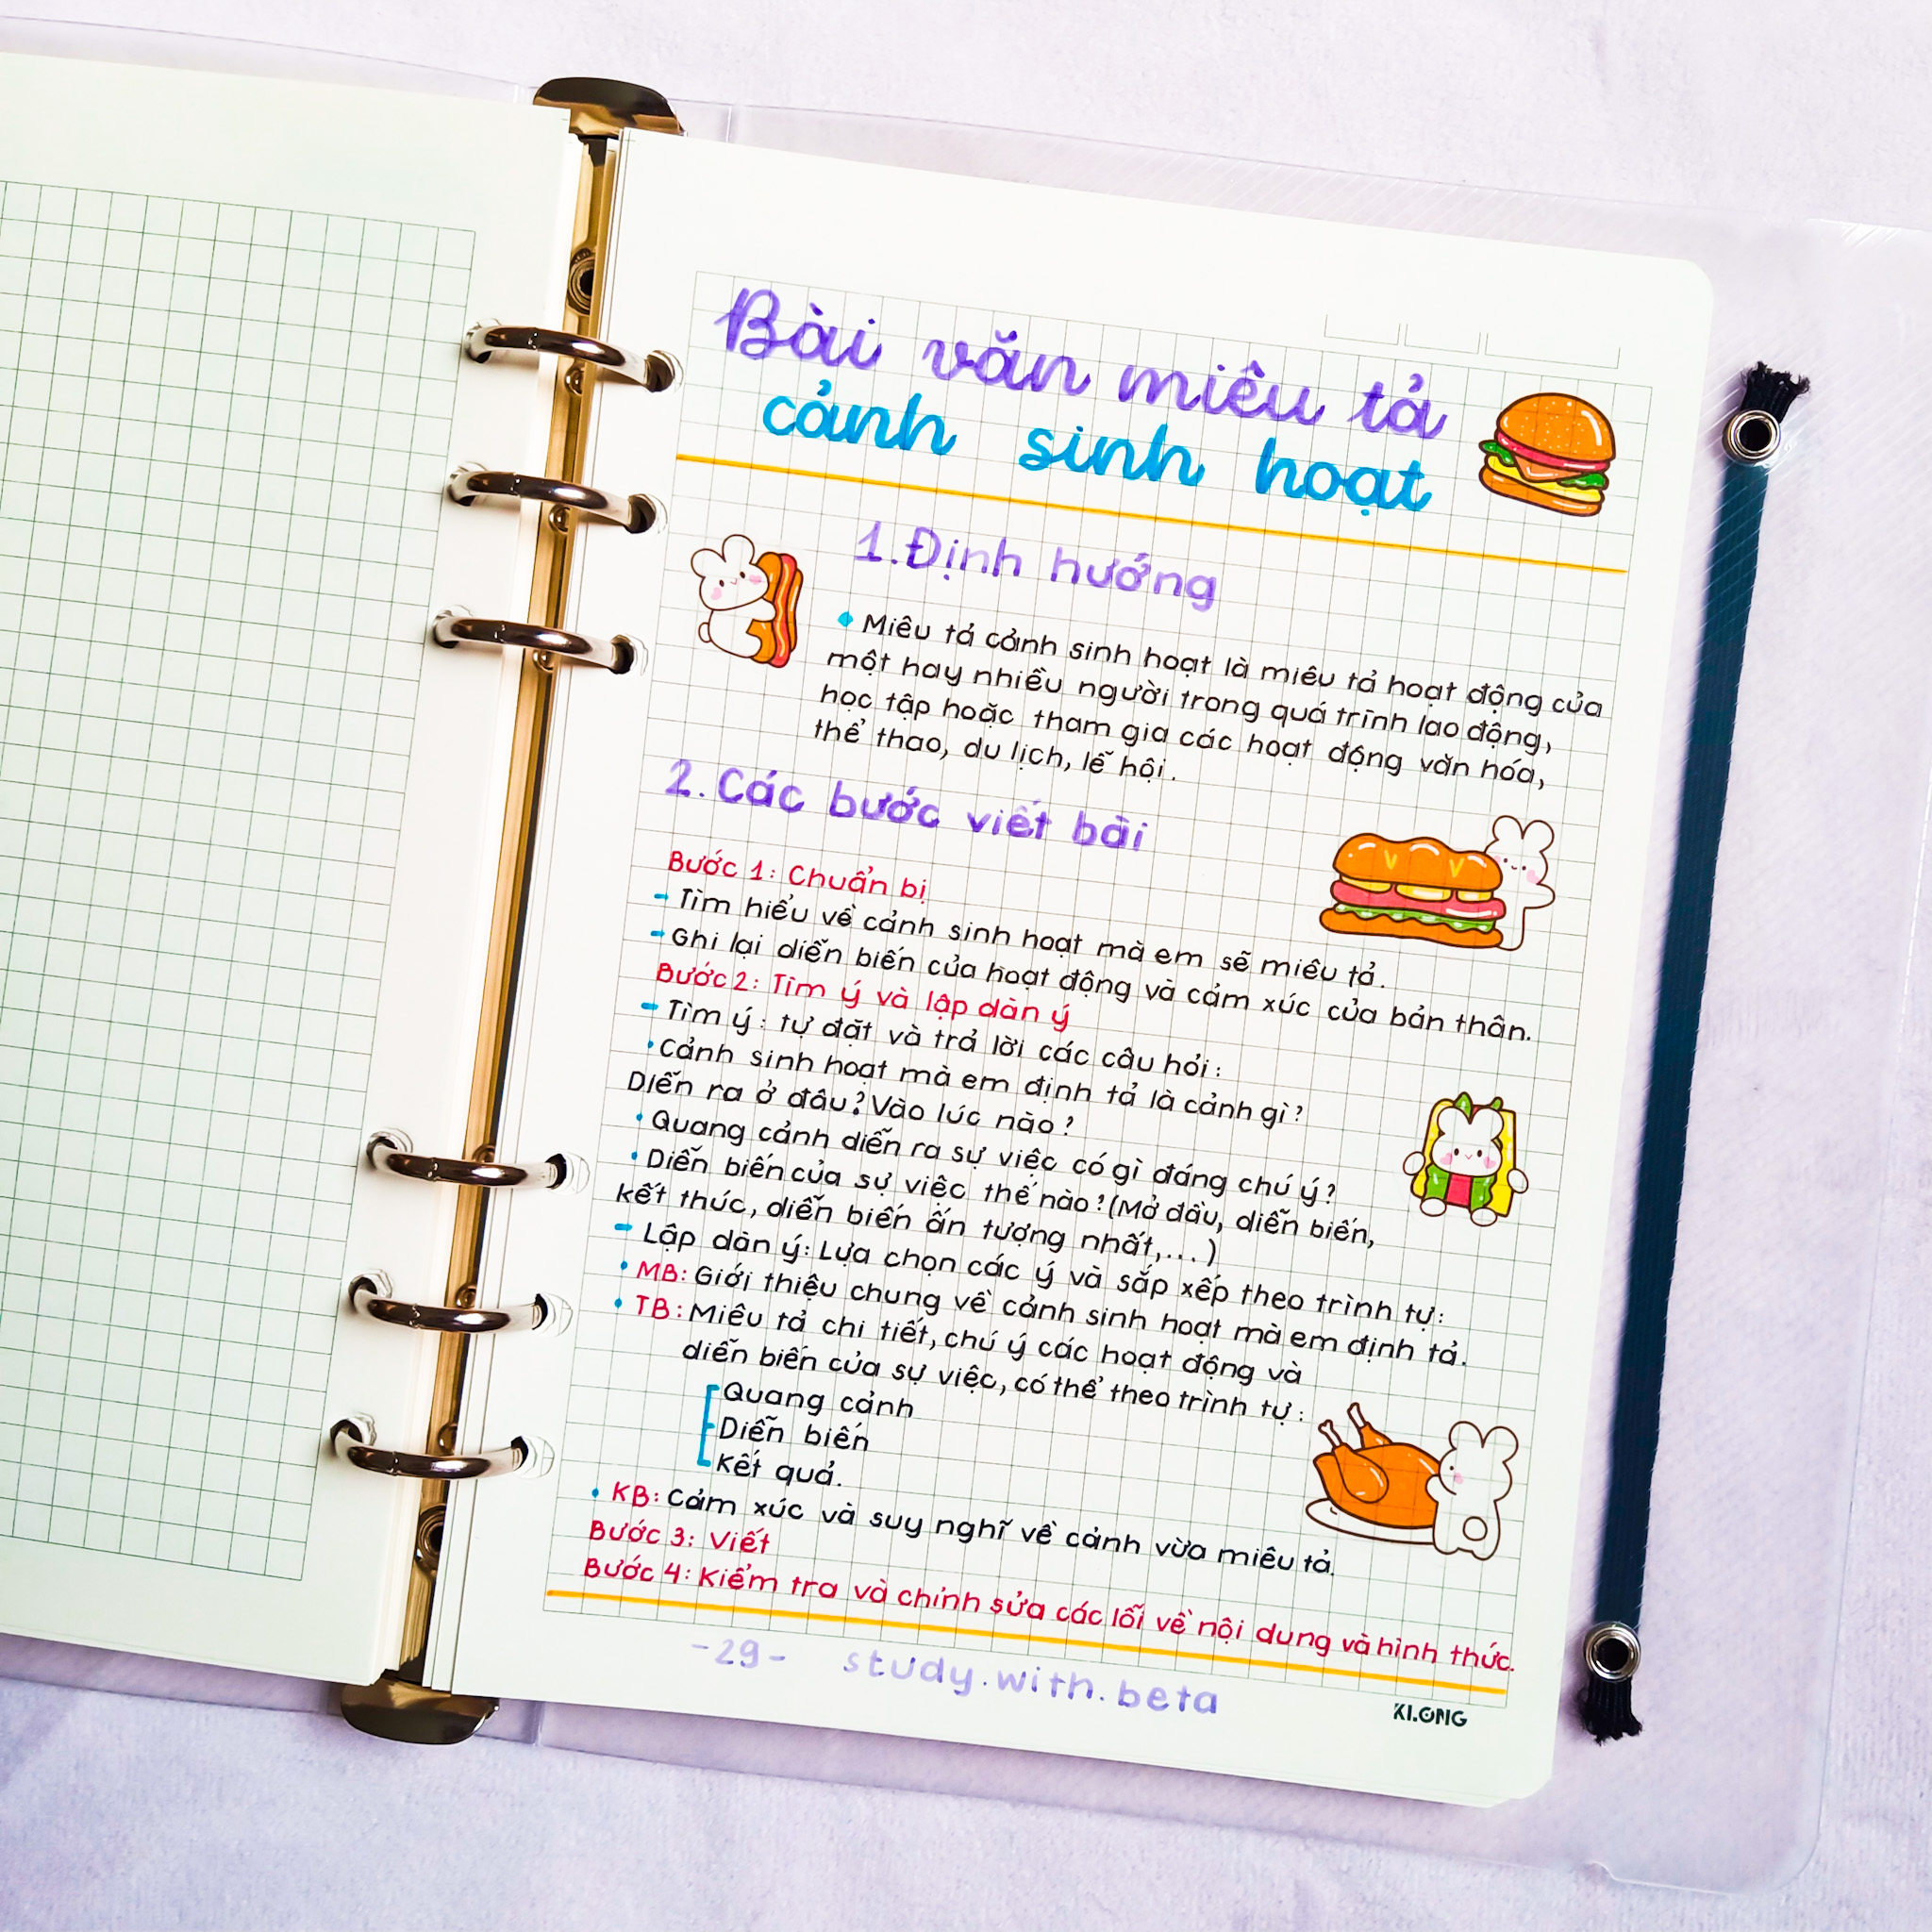 Bài văn miêu tả
cảnh sinh hoạt
1. Định hướng
Miêu tả cảnh sinh hoạt là miêu tả hoạt động của
một hay nhiều người trong quá trình lao động,
học tập hoặc tham gia các hoạt động văn hóa,
thể thao, du lịch, lễ hội.
2. Các bước viết bài
Bước 1: Chuẩn bị
- Tìm hiểu về cảnh sinh hoạt mà em sẽ miêu tả.
- Ghi lại diễn biến của hoạt động và cảm xúc của bản thân.
Bước 2: Tìm ý và lập dàn ý
- Tìm ý: tự đặt và trả lời các câu hỏi:
• Cảnh sinh hoạt mà em định tả là cảnh gì?
Diễn ra ở đâu? Vào lúc nào?
• Quang cảnh diễn ra sự việc có gì đáng chú ý?
• Diễn biến của sự việc thế nào? (Mở đầu, diễn biến,
kết thúc, diễn biến ấn tượng nhất,...)
- Lập dàn ý: Lựa chọn các ý và sắp xếp theo trình tự:
• MB: Giới thiệu chung về cảnh sinh hoạt mà em định tả.
• TB: Miêu tả chi tiết, chú ý các hoạt động và
diễn biến của sự việc, có thể theo trình tự:
Quang cảnh
Diễn biến
Kết quả.
• KB: Cảm xúc và suy nghĩ về cảnh vừa miêu tả.
Bước 3: Viết
Bước 4: Kiểm tra và chỉnh sửa các lỗi về nội dung và hình thức.
-29- study.with.beta
KLONG